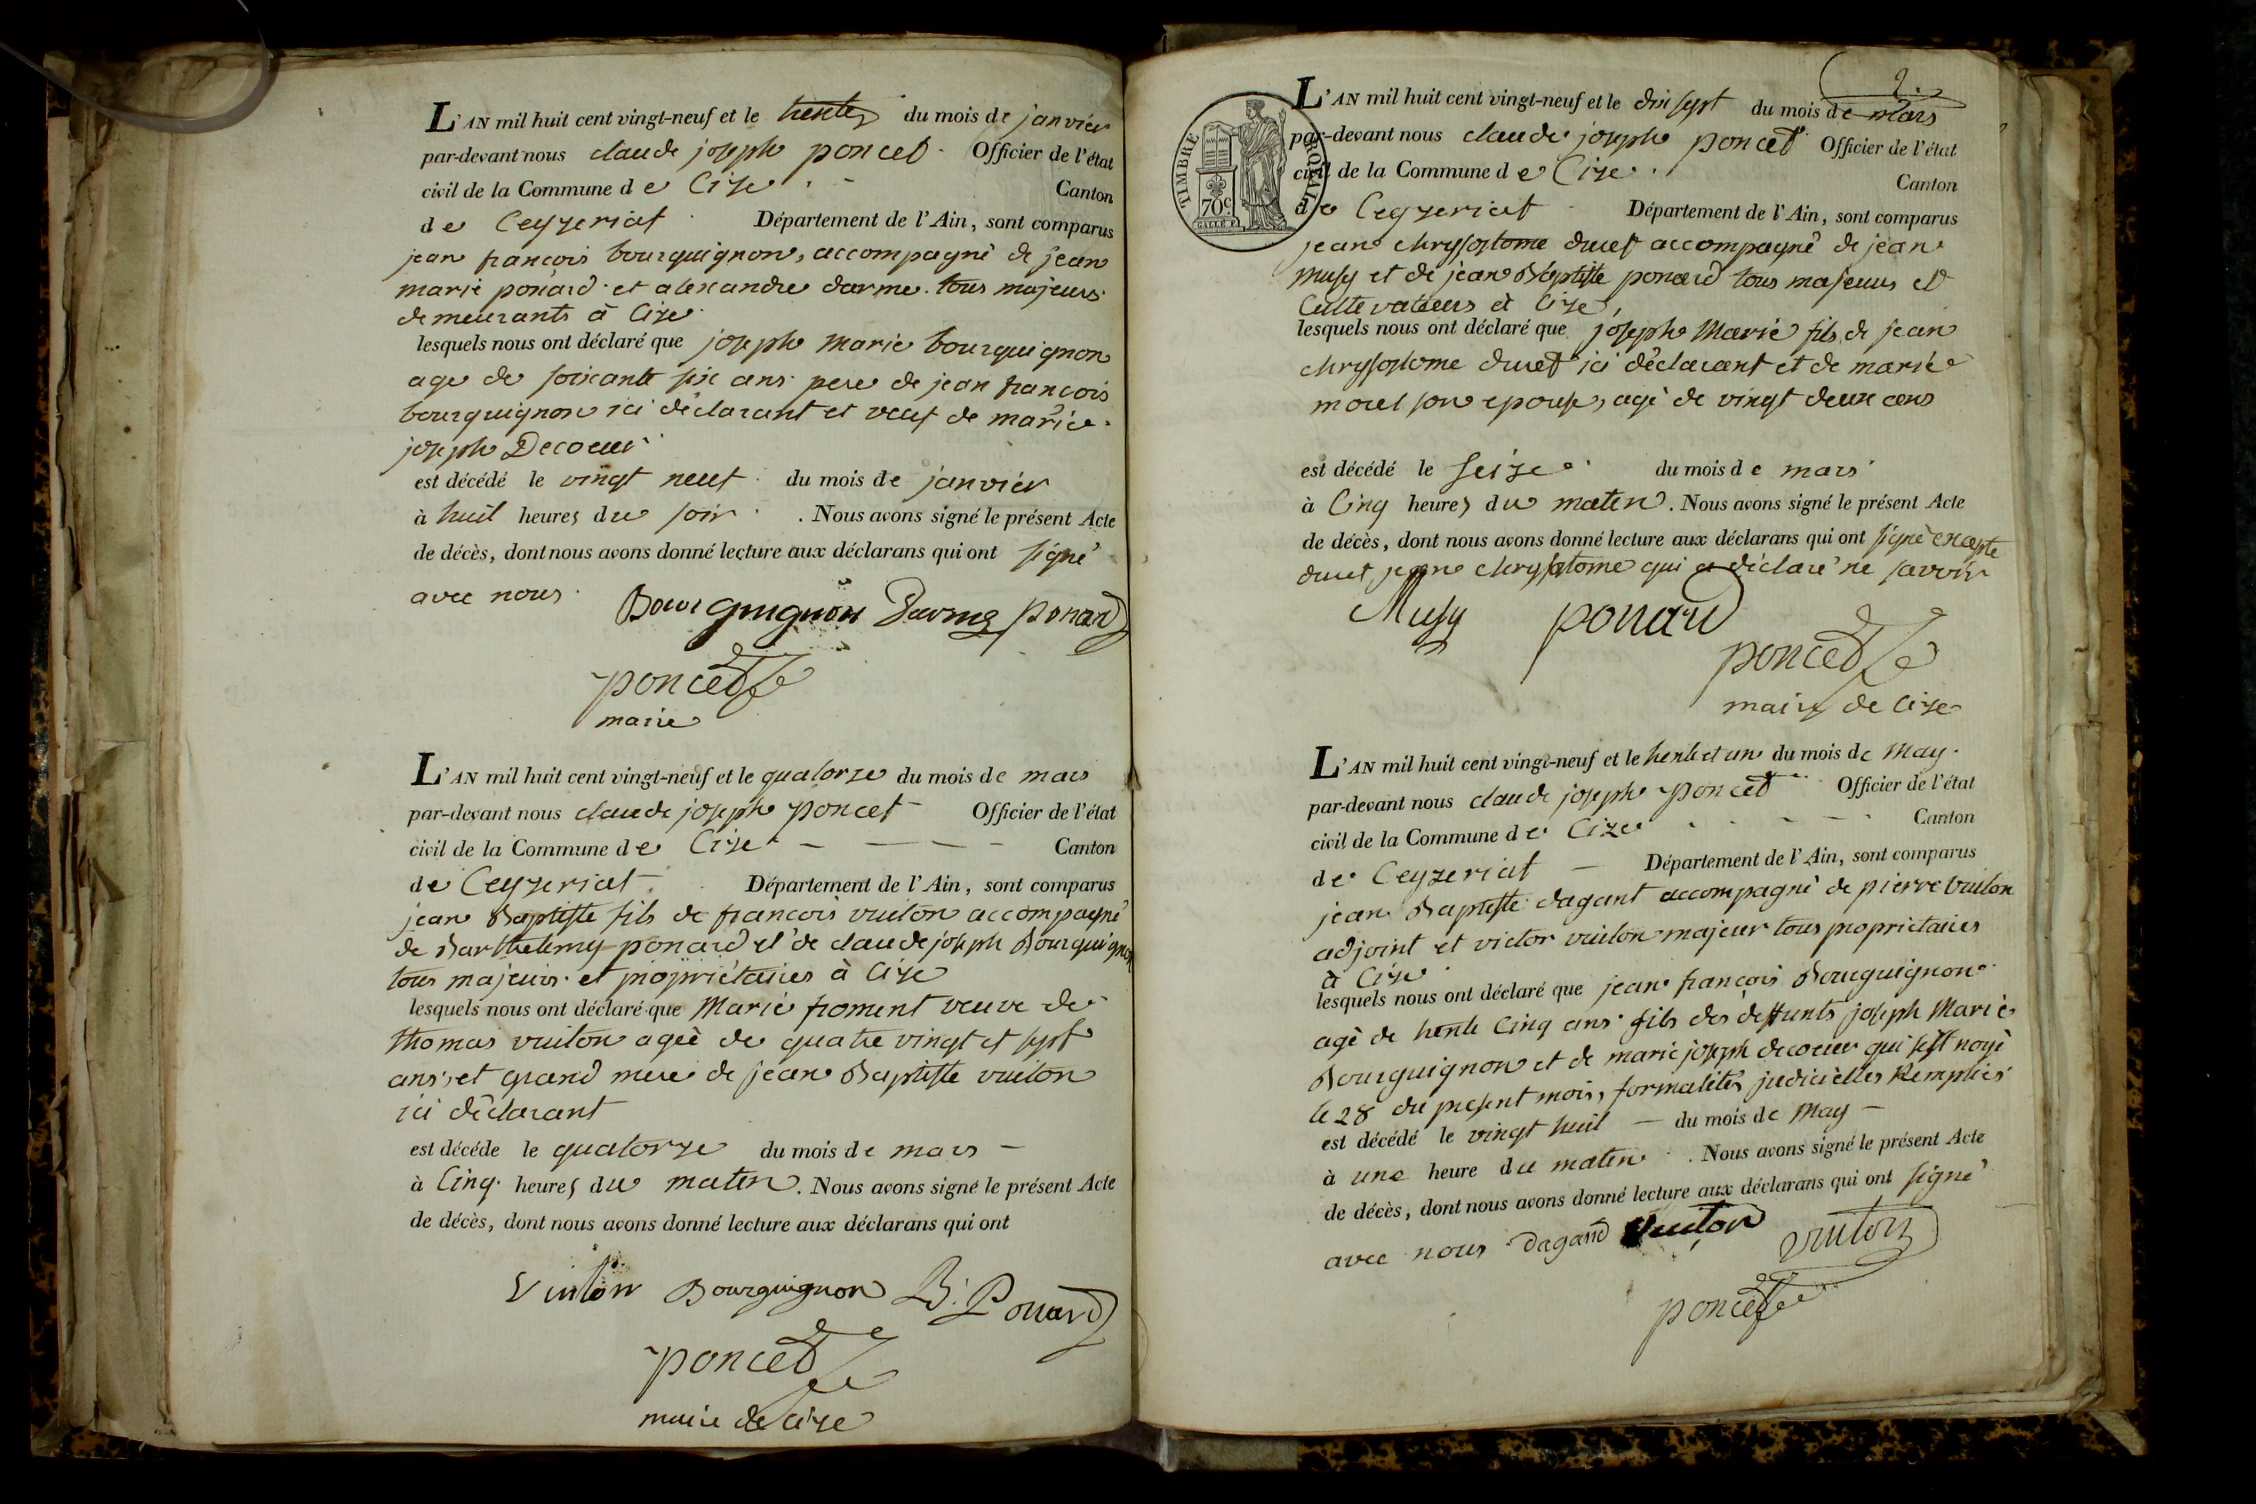 L'AN mil huit cent vingt-neuf et le trente du mois de janvier
par-devant nous claude joseph poncet Officier de l'état
civil de la Commune de Cize Canton
de Ceyzeriat Département de l'Ain, sont comparus
jean francois bourguignon, accompagné de jean
marie ponard et alexandre darme tous majeurs
demeurants à Cize
lesquels nous ont déclaré que joseph marie bourguignon
age de soixante six ans pere de jean francois
bourguignon ici déclarant et veuf de marie
joseph Decoeur
est décédé le vingt neuf du mois de janvier
à huit heures du soir. Nous avons signé le présent Acte
de décès, dont nous avons donné lecture aux déclarans qui ont signé
avec nous
Bourguignon Darme ponard
poncet
maire
L'AN mil huit cent vingt-neuf et le quatorze du mois de mars
par-devant nous claude joseph poncet Officier de l'état
civil de la Commune de Cize Canton
de Ceyzeriat Département de l'Ain, sont comparus
jean Baptiste fils de francois vuiton accompagné
de Barthelemy ponard et de claude joseph Bourguignon
tous majeurs et propriétaires à Cize
lesquels nous ont déclaré que Marie froment veuve de
thomas vuiton agée de quatre vingt et sept
ans, et grand mere de jean Baptiste vuiton
ici déclarant
est décéde le quatorze du mois de mars
à Cinq heures du matin. Nous avons signé le présent Acte
de décès, dont nous avons donné lecture aux déclarans qui ont
Vuiton Bourguignon B. Ponard
poncet
maire de Cize
2.
TIMBRE ROYAL
70c
L'AN mil huit cent vingt-neuf et le dix sept du mois de mars
par-devant nous claude joseph poncet Officier de l'état
civil de la Commune de Cize Canton
de Ceyzeriat Département de l'Ain, sont comparus
jean chrysostome ducet accompagné de jean
musy et de jean Baptiste ponard tous majeurs et
Cultivateurs à Cize,
lesquels nous ont déclaré que joseph Marie fils de jean
chrysostome ducet ici déclarant et de marie
morel son epouse, agé de vingt deux ans
est décédé le seize du mois de mars
à Cinq heures du matin. Nous avons signé le présent Acte
de décès, dont nous avons donné lecture aux déclarans qui ont signé excepté
ducet jean chrysostome qui a déclaré ne savoir
Musy ponard
poncet
maire de Cize
L'AN mil huit cent vingt-neuf et le trente et un du mois de May
par-devant nous claude joseph poncet Officier de l'état
civil de la Commune de Cize Canton
de Ceyzeriat Département de l'Ain, sont comparus
jean Baptiste dagant accompagné de pierre vuiton
adjoint et victor vuiton majeur tous proprietaires
à Cize
lesquels nous ont déclaré que jean francois Bourguignon
agé de trente Cinq ans fils des deffunts joseph Marie
Bourguignon et de marie joseph decoeur qui s'est noyé
le 28 du present mois, formalités judicielles Remplies
est décédé le vingt huit du mois de May
à une heure du matin. Nous avons signé le présent Acte
de décès, dont nous avons donné lecture aux déclarans qui ont signé
avec nous Dagand Vuiton vuiton
poncet